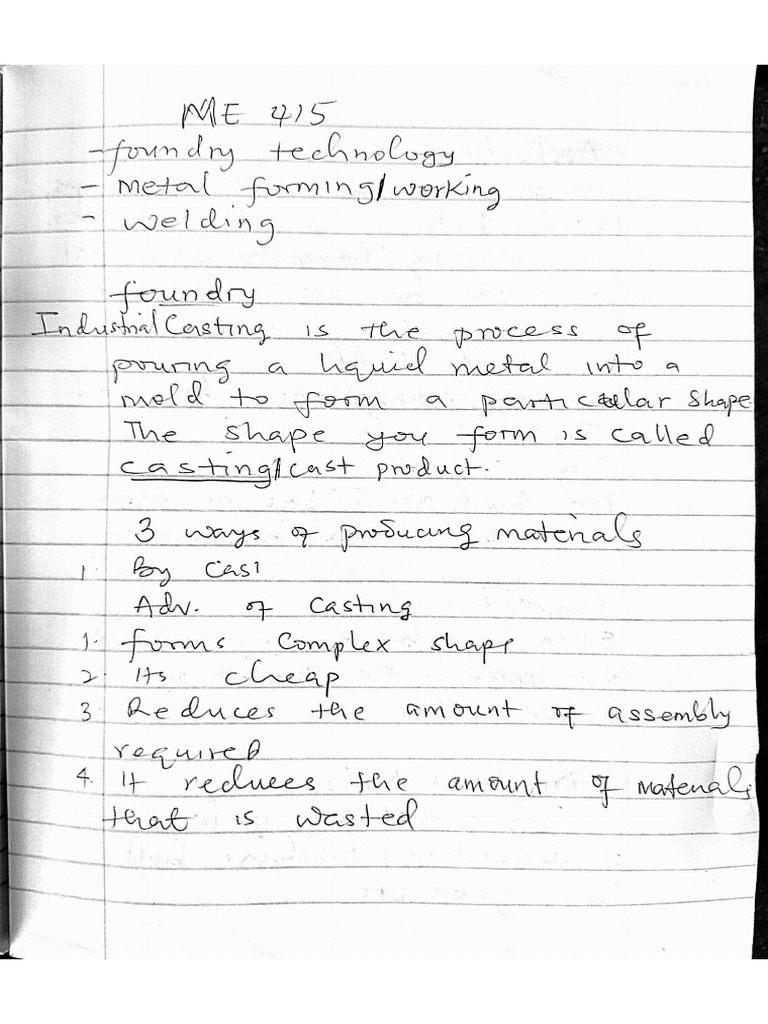 ME 415
- foundry technology
- metal forming/working
- welding
foundry
Industrial Casting is the process of
pouring a liquid metal into a
mold to form a particular shape
The shape you form is called
casting/cast product.
3 ways of producing materials
1. By Cast
Adv. of Casting
1. forms complex shape
2. Its cheap
3. Reduces the amount of assembly
required
4. It reduces the amount of materials
that is wasted